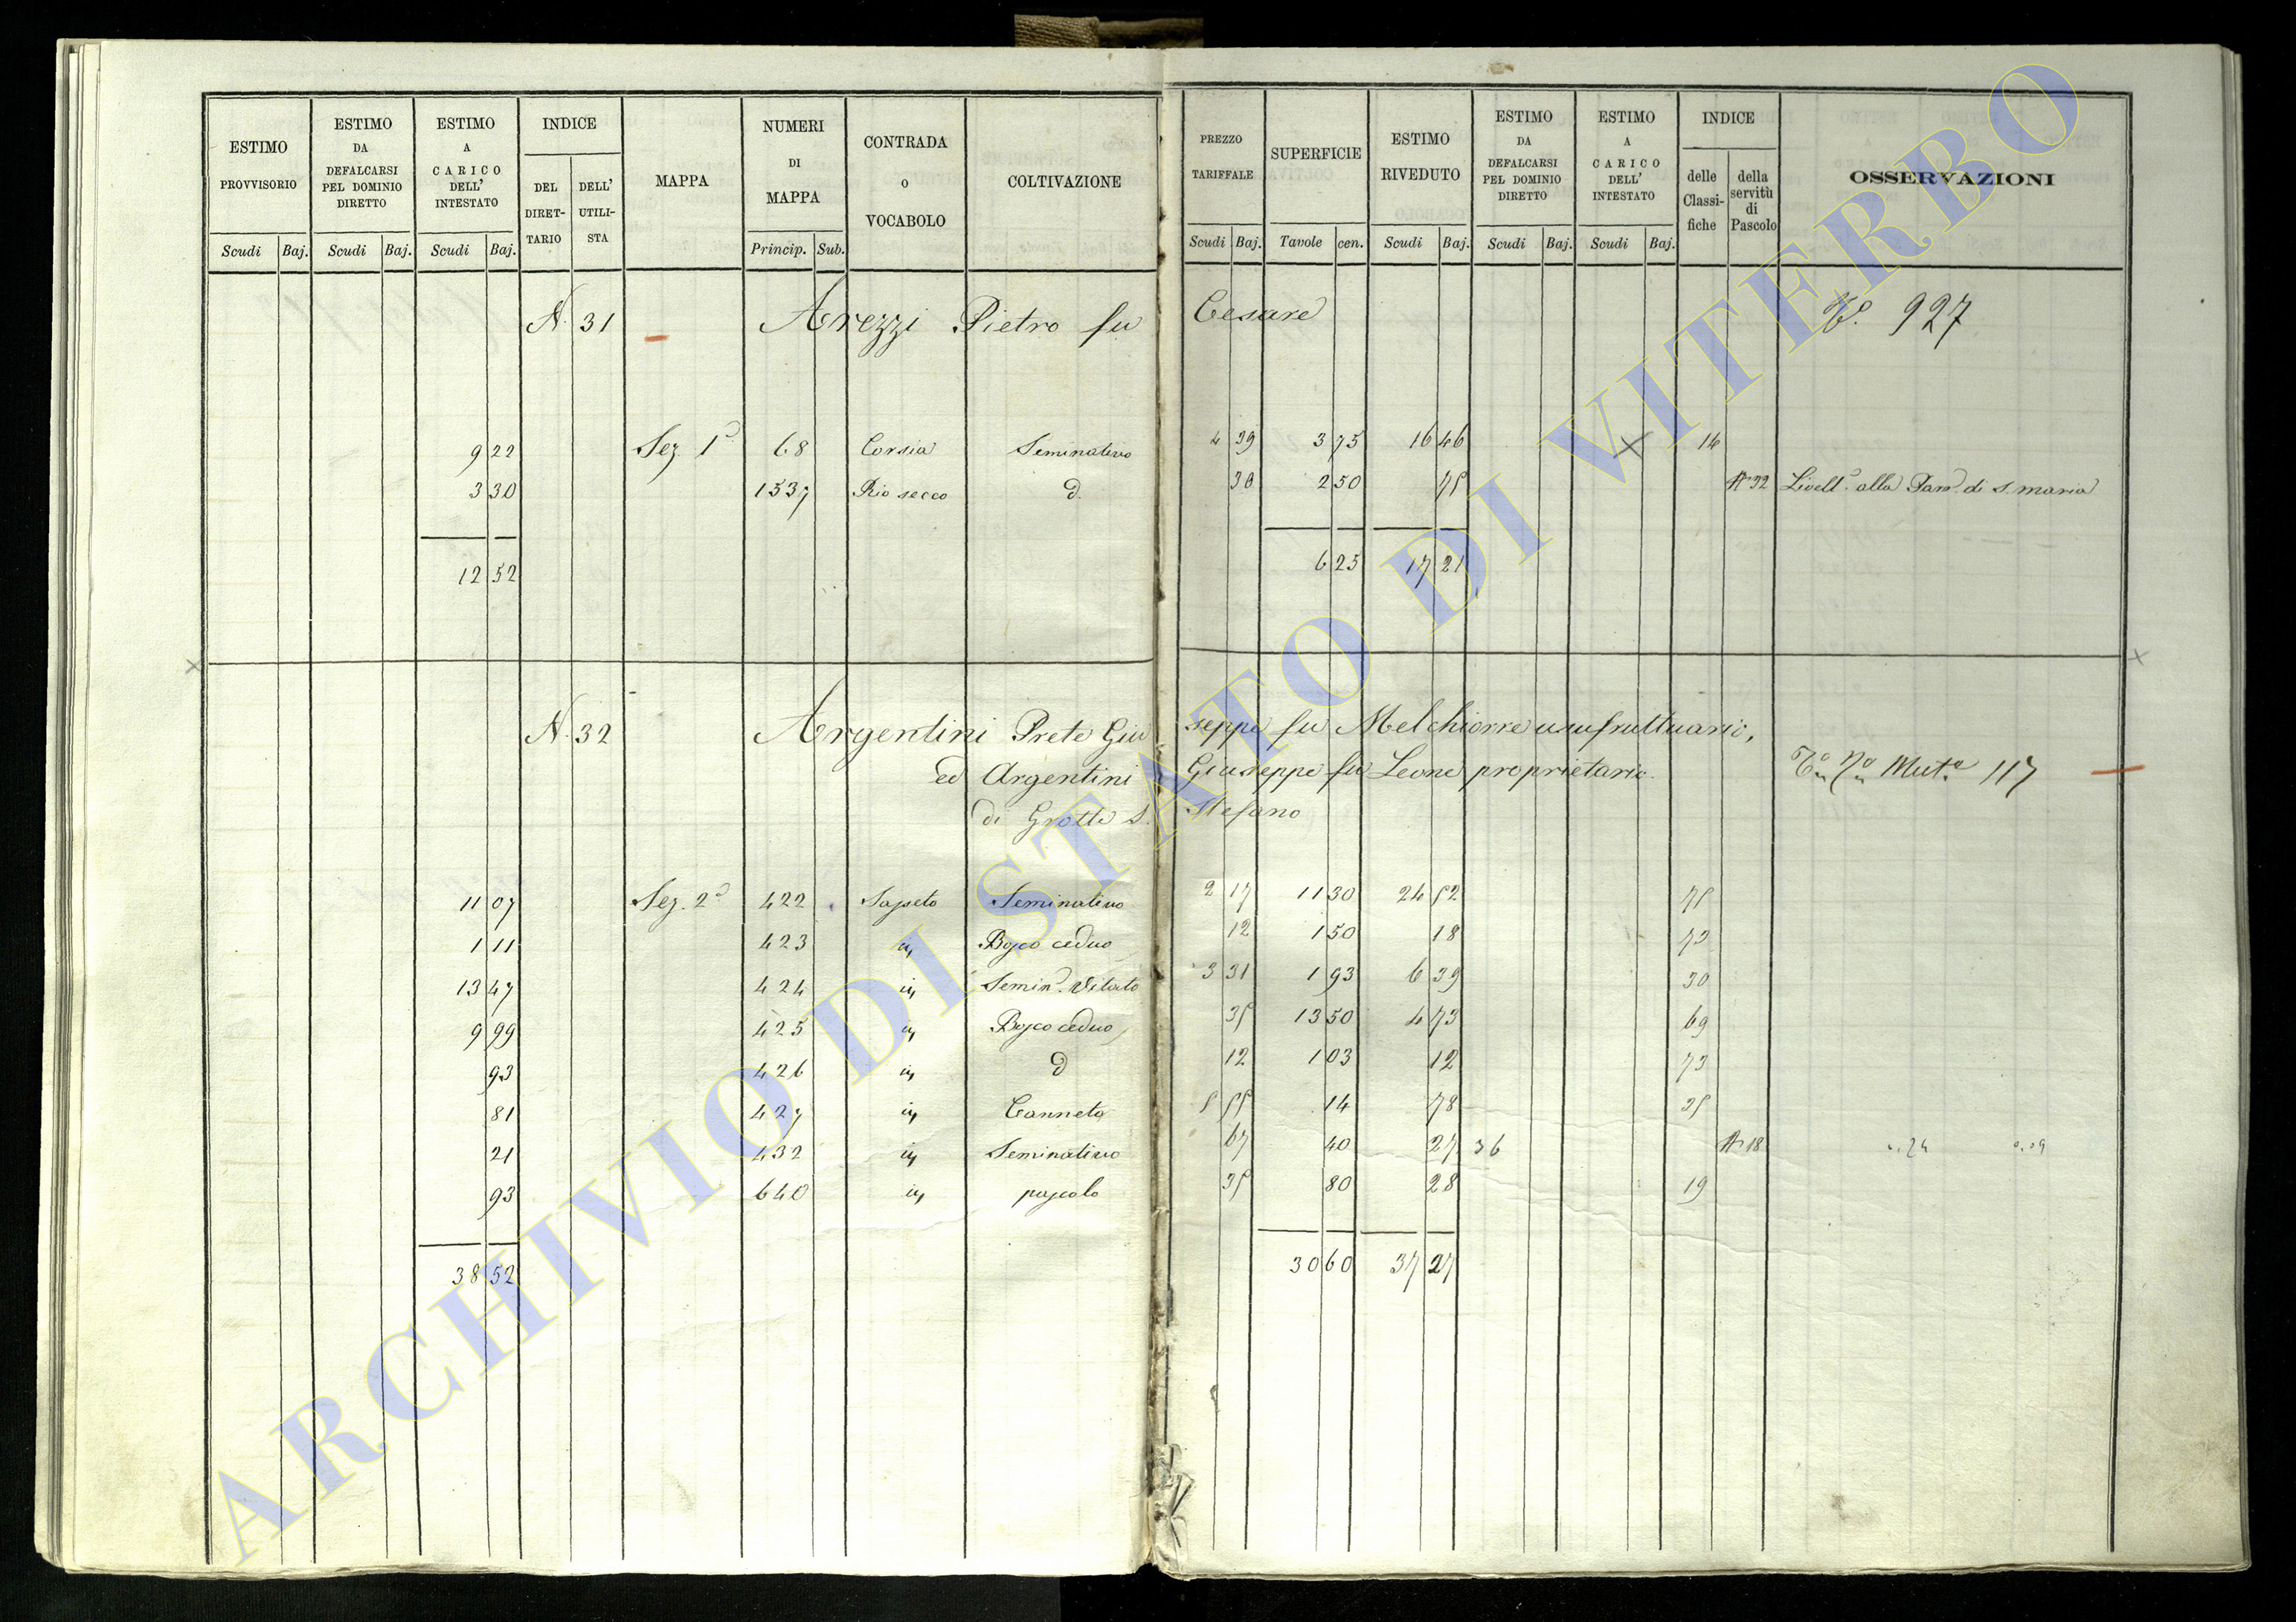 ESTIMO PROVVISORIO
ESTIMO DA DEFALCARSI PEL DOMINIO DIRETTO
ESTIMO A CARICO DELL' INTESTATO
INDICE
DEL DIRET-TARIO
DELL' UTILI-STA
MAPPA
NUMERI DI MAPPA
CONTRADA O VOCABOLO
COLTIVAZIONE
PREZZO TARIFFALE
SUPERFICIE
ESTIMO RIVEDUTO
ESTIMO DA DEFALCARSI PEL DOMINIO DIRETTO
ESTIMO A CARICO DELL' INTESTATO
INDICE
delle Classi-fiche
della servitù di Pascolo
OSSERVAZIONI
Scudi Baj. Scudi Baj. Scudi Baj. Princip. Sub. Scudi Baj. Tavole cen. Scudi Baj. Scudi Baj. Scudi Baj.
N. 31 Arezzi Pietro fu Cesare 927
9 22 Sez. 1ª 68 Corsia Seminativo 4 39 3 75 16 46 14
3 30 1537 Rio secco d. 30 2 50 75 32 Livell. alla Parr. di S. Maria
12 52 6 25 17 21
N. 32 Argentini Prete Giuseppe fu Melchiorre usufruttuario,
ed Argentini Giuseppe fu Leone proprietario Mut. 117
di Grotte S. Stefano
11 07 Sez. 2ª 422 Sapeto Seminativo 2 17 11 30 24 52 75
1 11 423 Bosco ceduo 12 1 50 18 73
13 47 424 Semin. Vitato 3 31 1 93 6 39 30
9 99 425 Bosco ceduo 35 13 50 4 73 69
93 426 d 12 1 03 12 73
81 427 Canneto 5 55 14 78 35
21 432 Seminativo 67 40 27 36 18
93 640 pascolo 35 80 28 19
38 52 30 60 37 27
ARCHIVIO DI STATO DI VITERBO